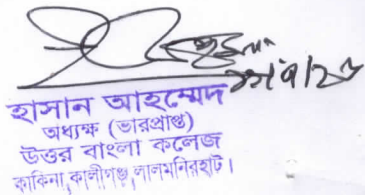 হাসান আহম্মেদ
অধ্যক্ষ (ভারপ্রাপ্ত)
উত্তর বাংলা কলেজ
কাকিনা, কালীগঞ্জ, লালমনিরহাট।